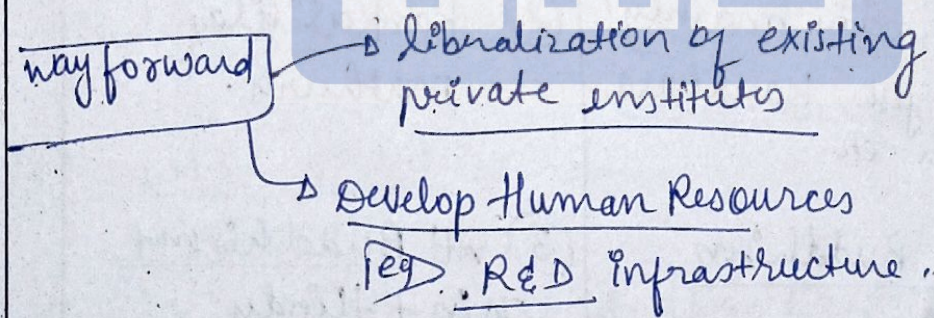 way forward
→ liberalization of existing
private institutes
→ Develop Human Resources
eg R&D infrastructure.